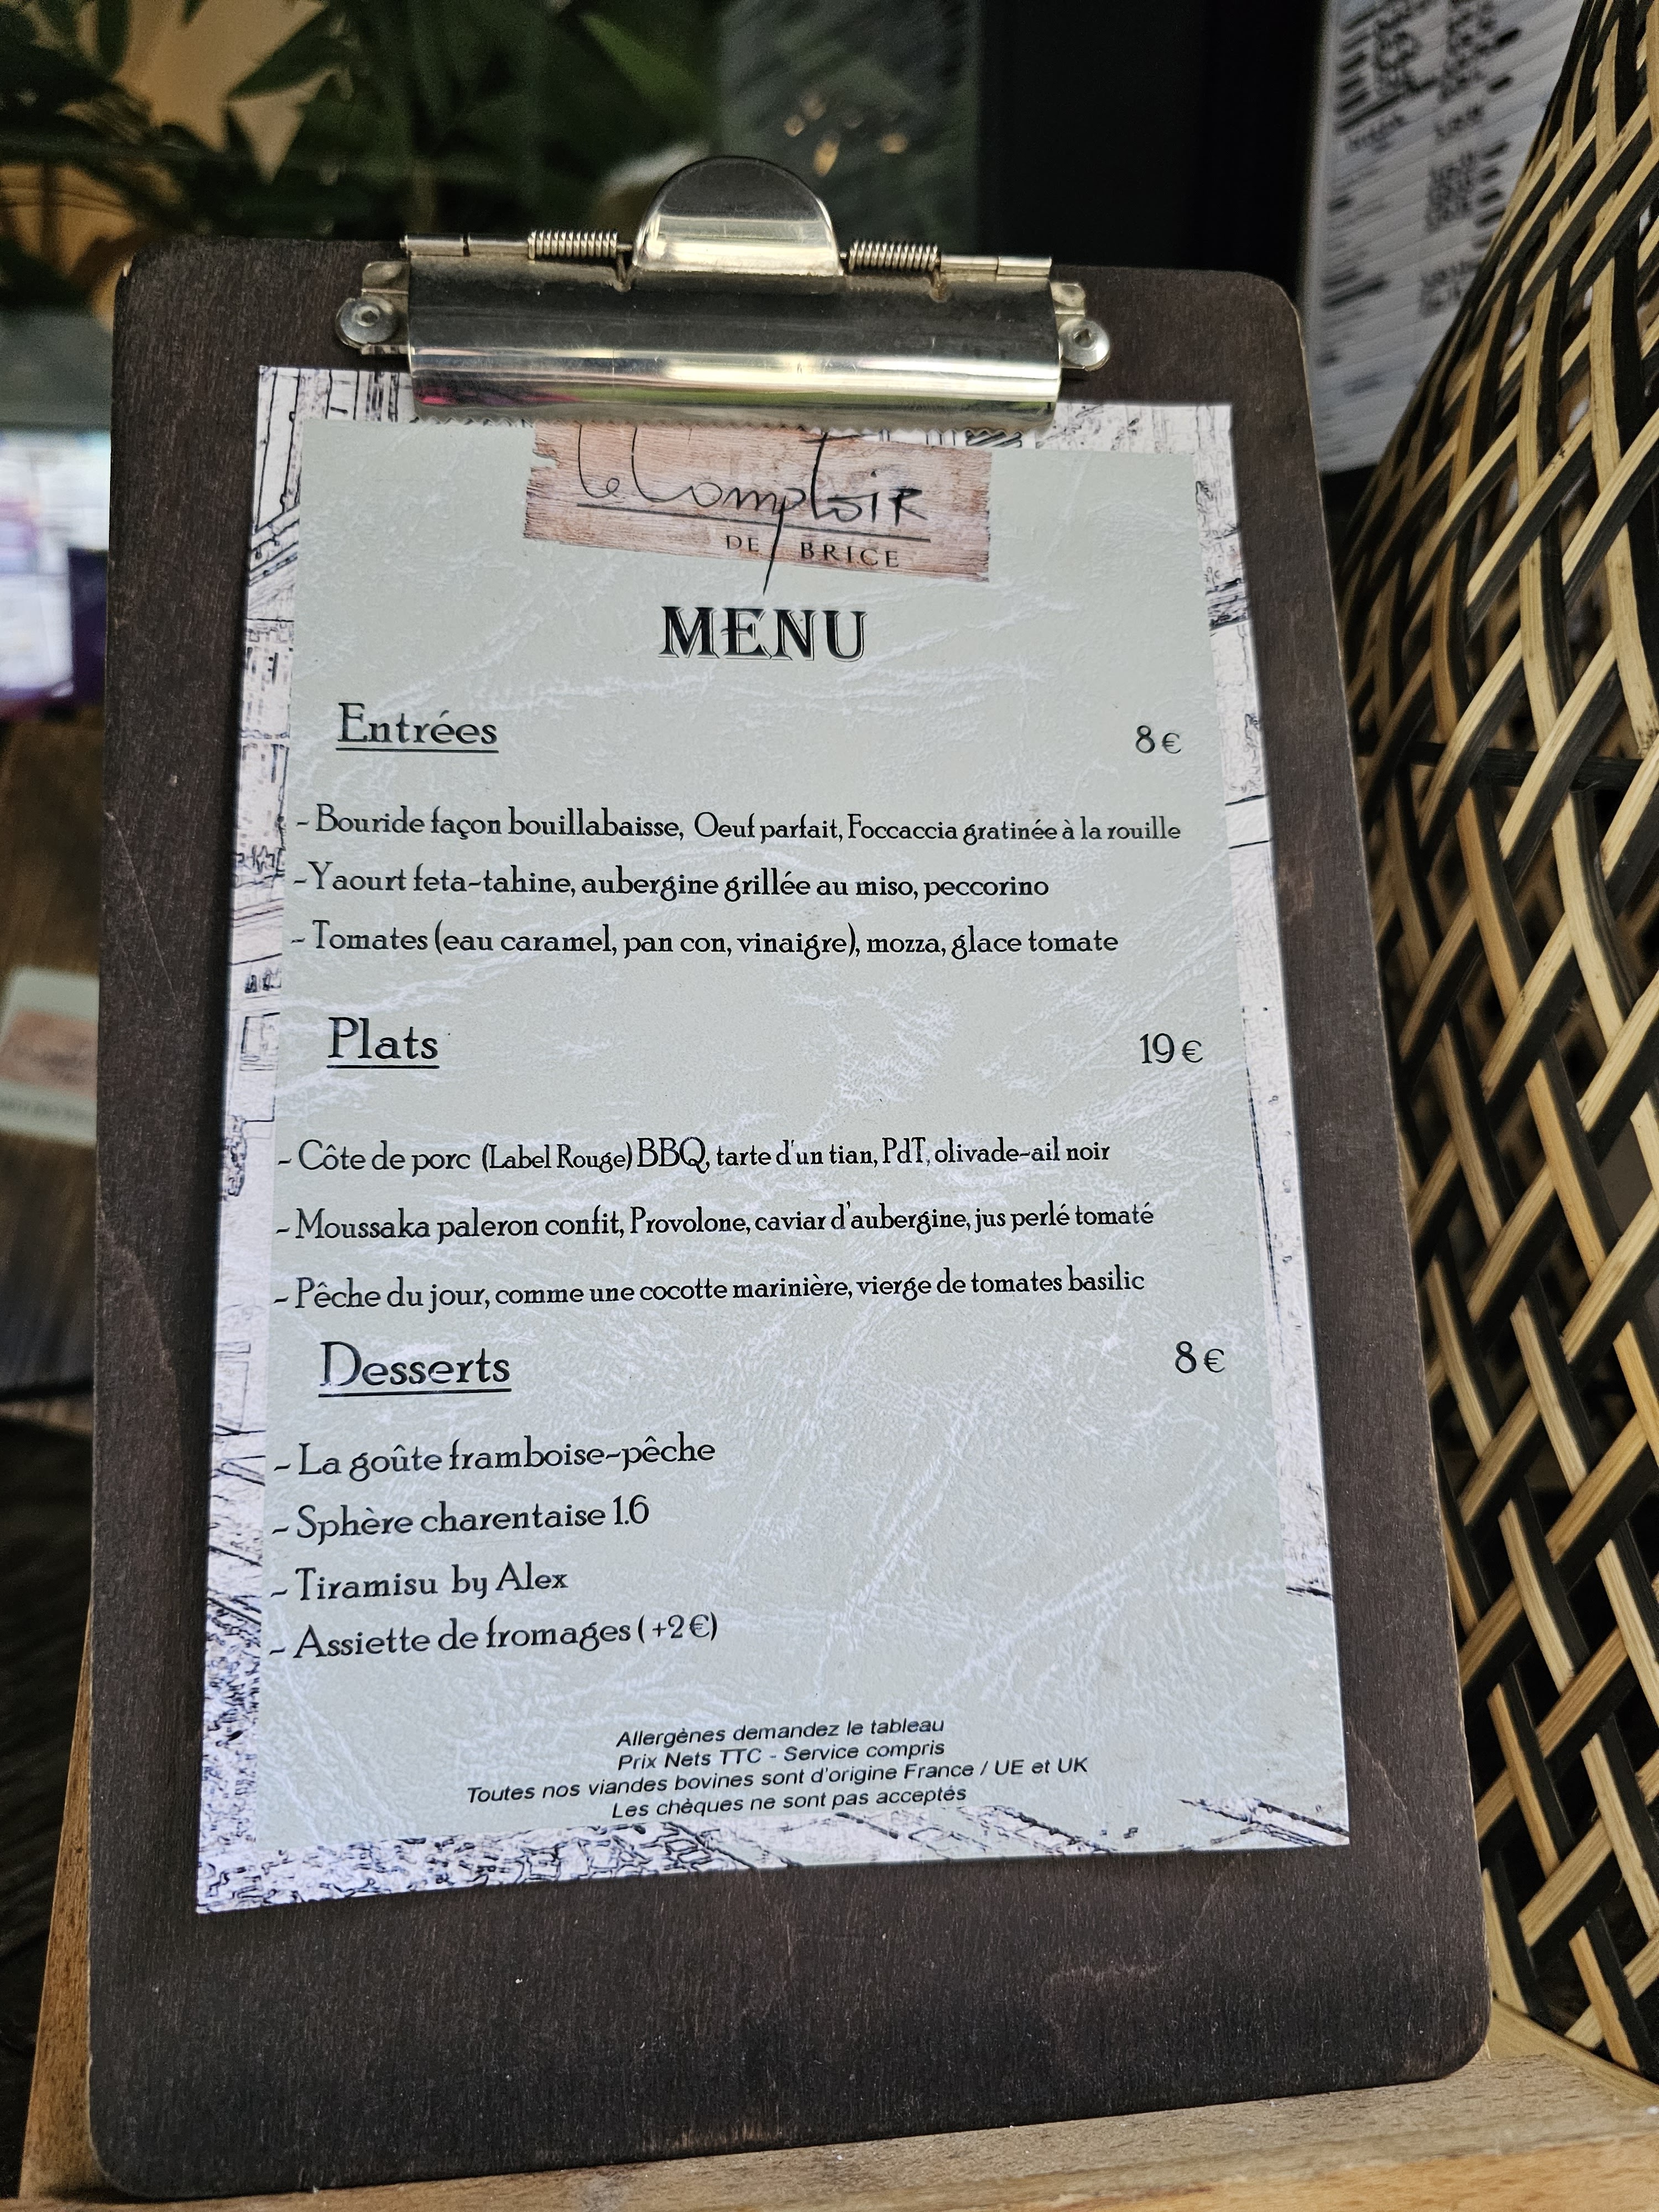 le Comptoir
DE BRICE
MENU
Entrées 8€
- Bouride façon bouillabaisse, Oeuf parfait, Foccaccia gratinée à la rouille
- Yaourt feta-tahine, aubergine grillée au miso, peccorino
- Tomates (eau caramel, pan con, vinaigre), mozza, glace tomate
Plats 19€
- Côte de porc (Label Rouge) BBQ, tarte d'un tian, PdT, olivade-ail noir
- Moussaka paleron confit, Provolone, caviar d'aubergine, jus perlé tomaté
- Pêche du jour, comme une cocotte marinière, vierge de tomates basilic
Desserts 8€
- La goûte framboise-pêche
- Sphère charentaise 1.6
- Tiramisu by Alex
- Assiette de fromages (+2€)
Allergènes demandez le tableau
Prix Nets TTC - Service compris
Toutes nos viandes bovines sont d'origine France / UE et UK
Les chèques ne sont pas acceptés